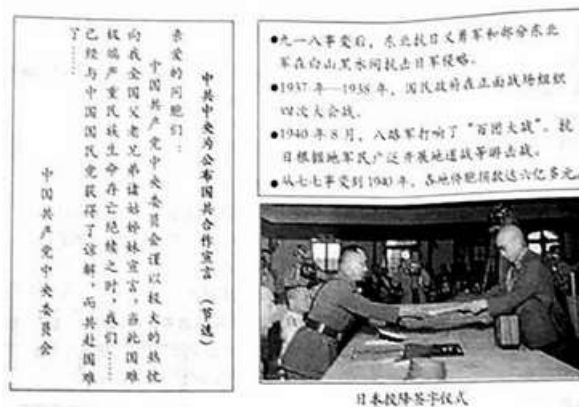 中共中央为公布国共合作宣言 (节选)
亲爱的同胞们：
中国共产党中央委员会谨以极大的热忱
向我全国父老兄弟诸姑姊妹宣言，当此国难
极端严重民族生命存亡绝续之时，我们……
已经与中国国民党获得了谅解，而共赴国难
了……
中国共产党中央委员会
●九一八事变后，东北抗日义勇军和部分东北
军在白山黑水间抗击日军侵略。
●1937年—1938年，国民政府在正面战场组织
四次大会战。
●1940年8月，八路军打响了“百团大战”。抗
日根据地军民广泛开展地道战等游击战。
●从七七事变到1940年，各地侨胞捐款达六亿多元。
日本投降签字仪式